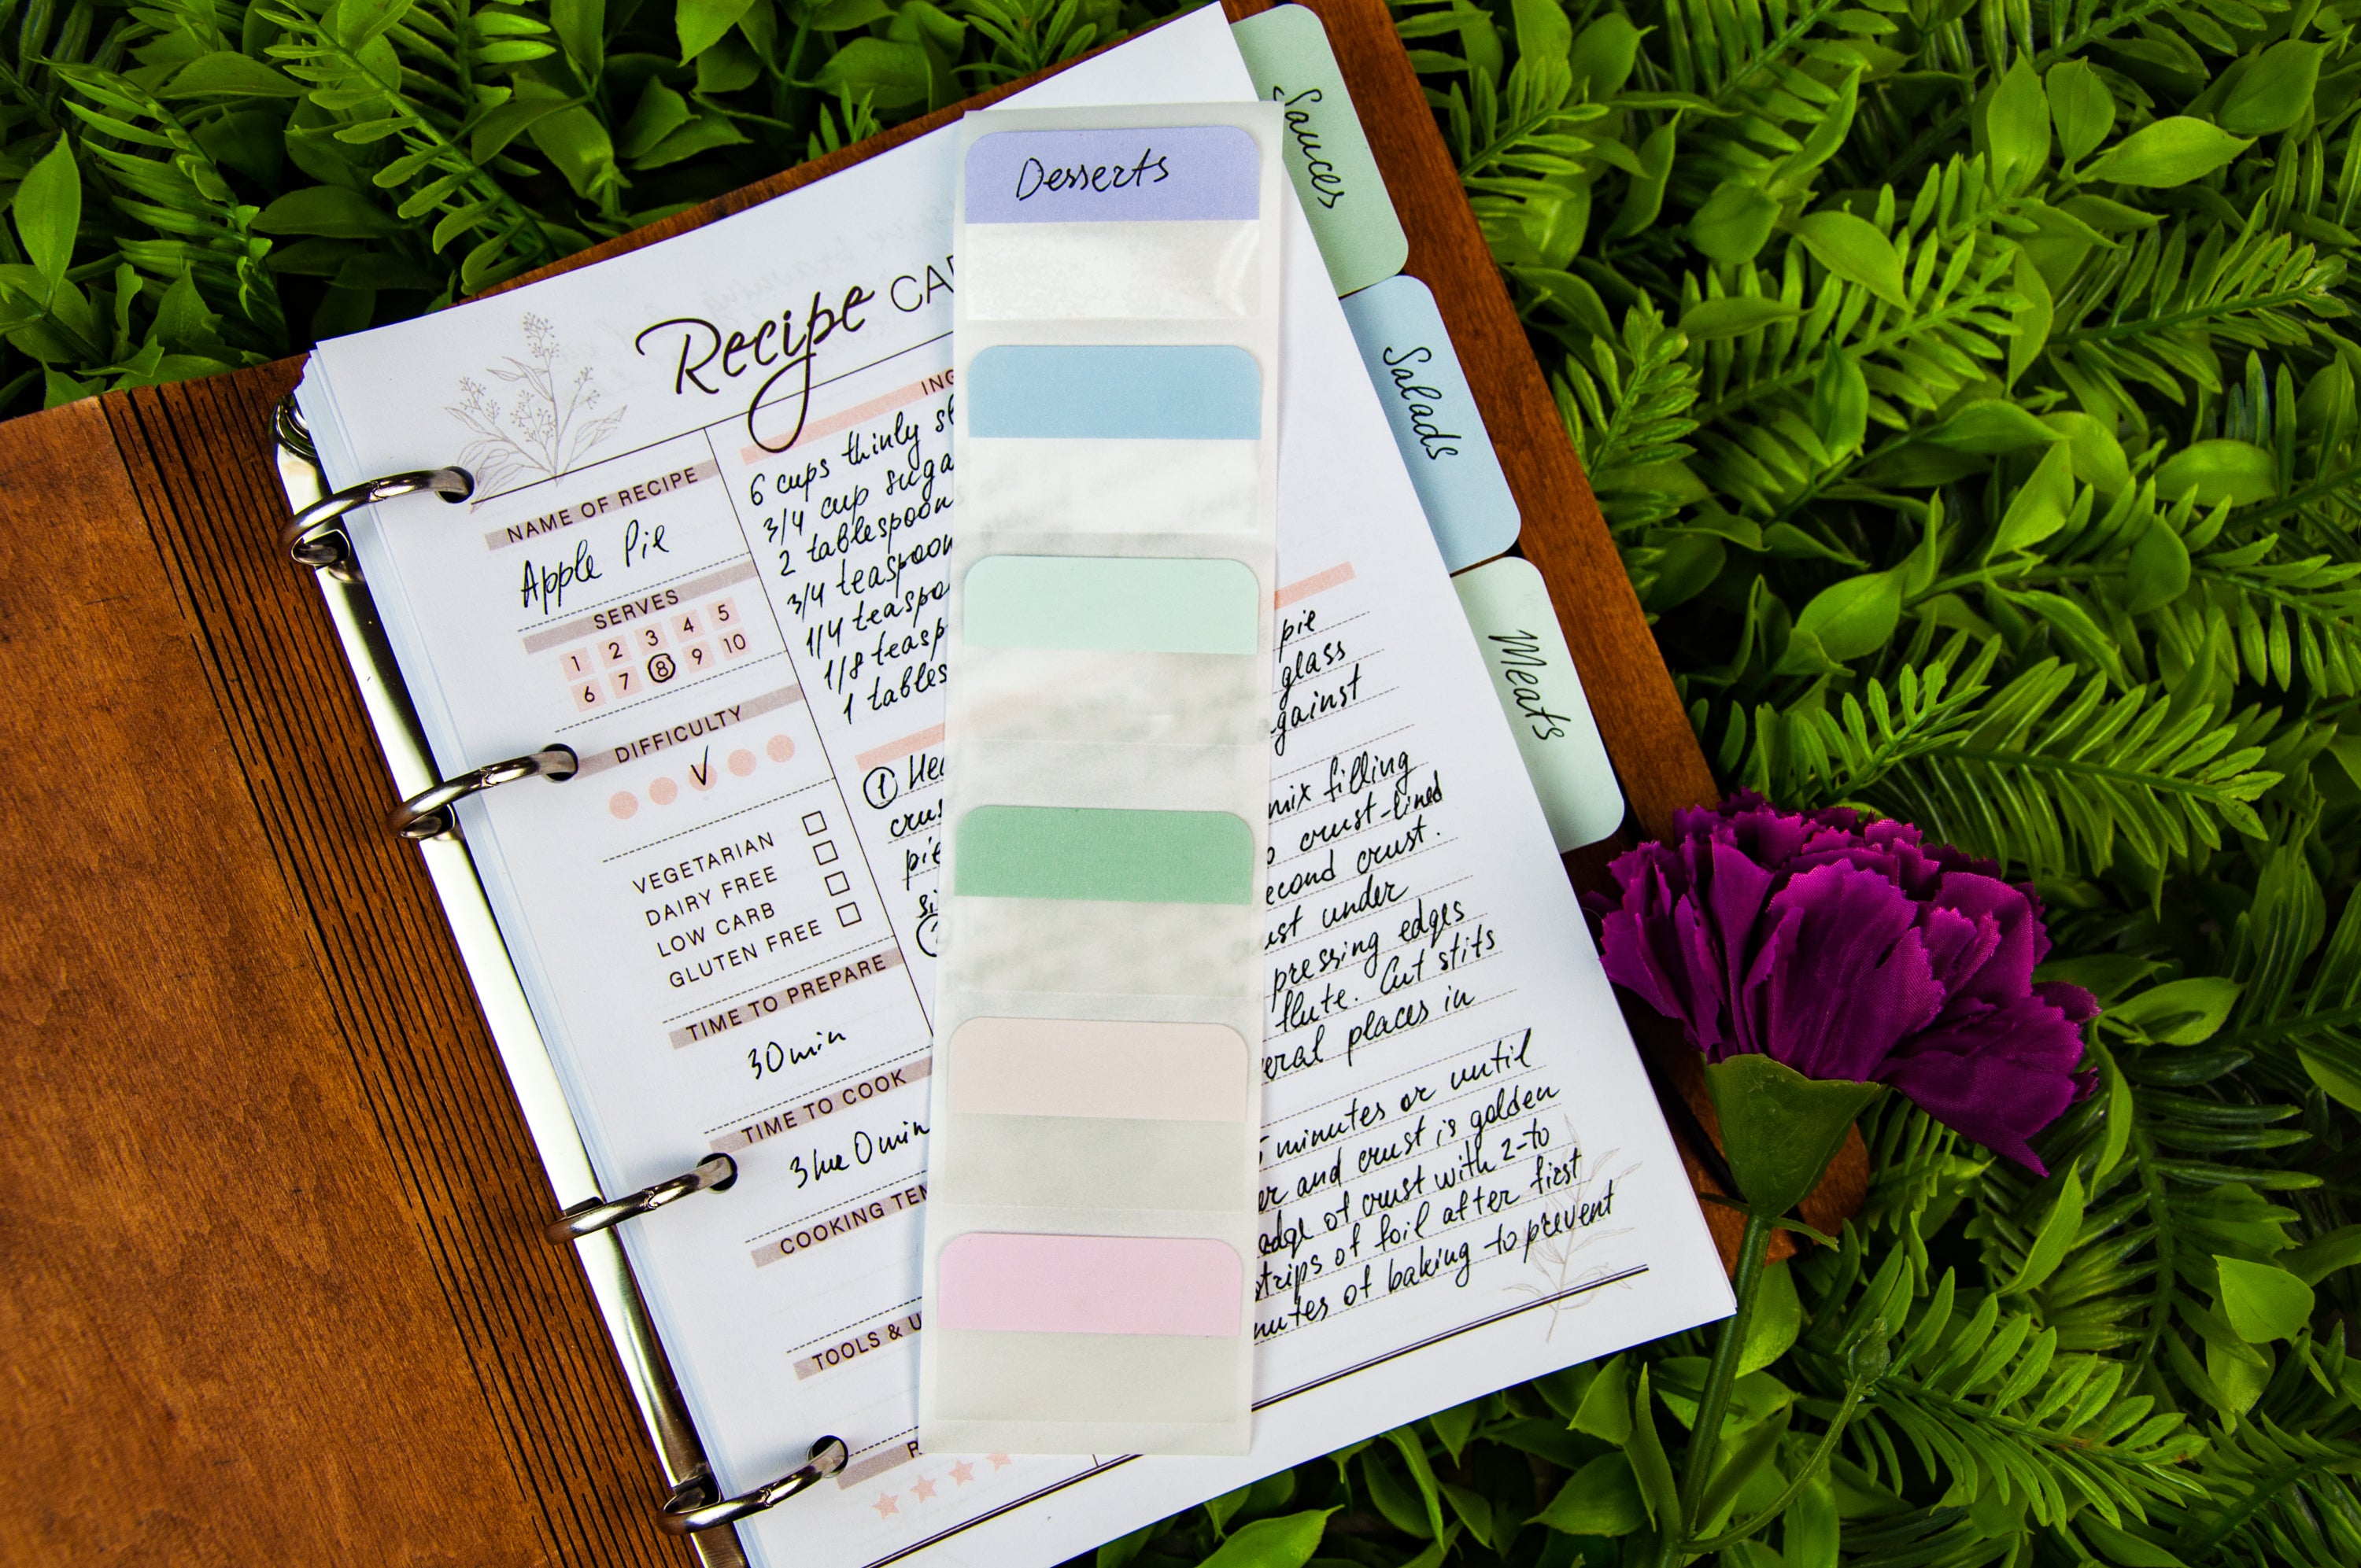 Desserts
Sauces
Salads
Meats
Recipe CA
NAME OF RECIPE
Apple Pie
SERVES
1 2 3 4 5
6 7 8 9 10
DIFFICULTY
VEGETARIAN
DAIRY FREE
LOW CARB
GLUTEN FREE
TIME TO PREPARE
30min
TIME TO COOK
COOKING TE
TOOLS & U
R
ING
6 cups thinly sl
3/4 cup suga
2 tablespoon
3/4 teaspoon
1/4 teaspo
1/8 teasp
1 tables
1 Hea
crus
pie
si
2
pie
glass
gainst
mix filling
o crust-lined
econd crust.
ust under
pressing edges
flute. Cut stits
eral places in
5 minutes or until
er and crust is golden
edge of crust with 2-to
strips of foil after first
nutes of baking to prevent